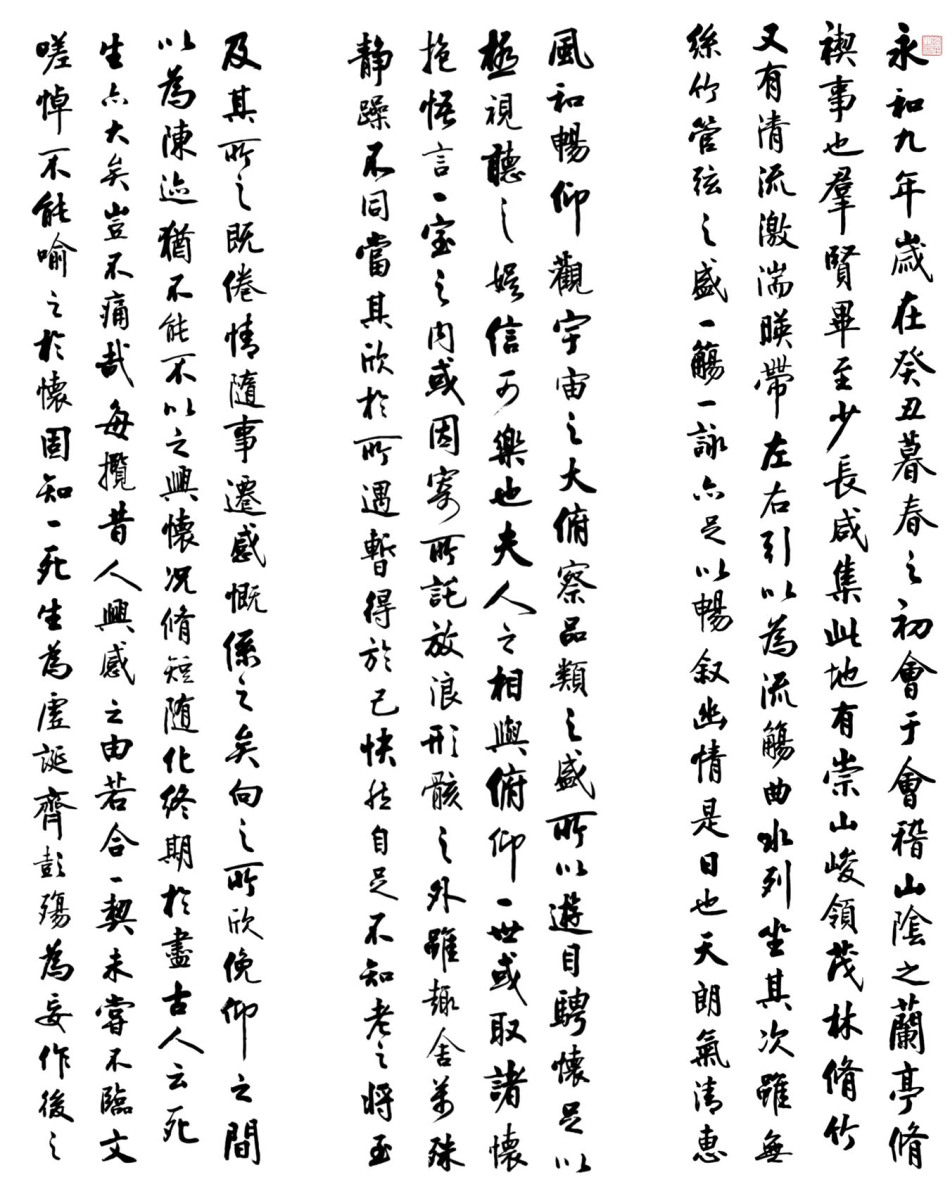 永和九年歲在癸丑暮春之初會于會稽山陰之蘭亭脩
禊事也羣賢畢至少長咸集此地有崇山峻領茂林脩竹
又有清流激湍暎帶左右引以為流觴曲水列坐其次雖無
絲竹管弦之盛一觴一詠亦足以暢叙幽情是日也天朗氣清惠
風和暢仰觀宇宙之大俯察品類之盛所以遊目騁懷足以
極視聽之娛信可樂也夫人之相與俯仰一世或取諸懷
抱悟言一室之内或因寄所託放浪形骸之外雖趣舍萬殊
静躁不同當其欣於所遇暫得於己快然自足不知老之將至
及其所之既倦情隨事遷感慨係之矣向之所欣俛仰之間
以為陳迹猶不能不以之興懷況脩短随化終期於盡古人云死
生亦大矣豈不痛哉每攬昔人興感之由若合一契未嘗不臨文
嗟悼不能喻之於懷固知一死生為虛誕齊彭殤為妄作後之